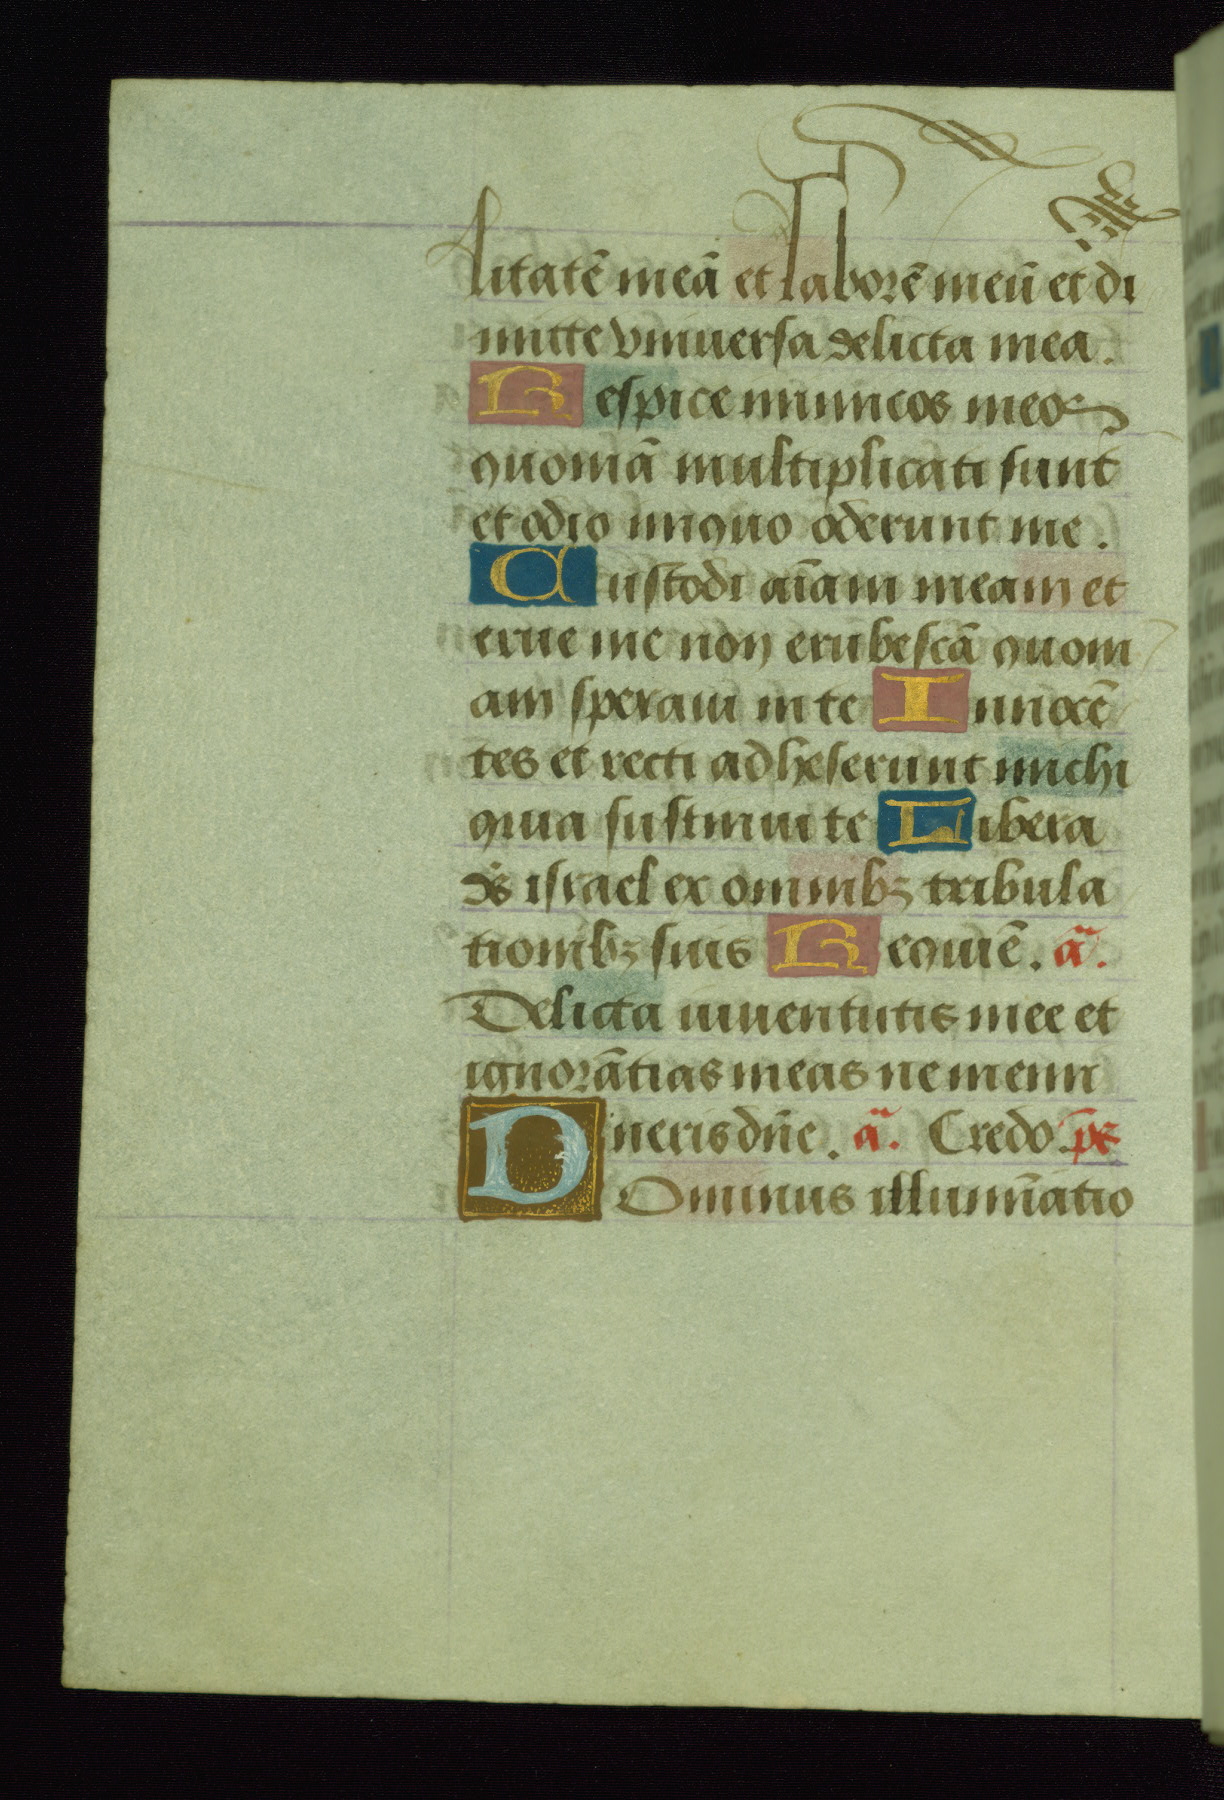 litatē meā et laborē meū et di
mitte vniuersa delicta mea.
Respice inimicos meos
quoniā multiplicati sunt
et odio iniquo oderunt me.
Custodi aīam meam et
erue me non erubescā quoni
am speraui in te Innocē
tes et recti adheserunt michi
quia sustinui te Libera
ds israel ex omnibꝫ tribula
tionibꝫ suis Requiē. ā.
Delicta iuuentutis mee et
ignorātias meas ne memi
neris dn̄e. ā. Credo. ps
Dominus illumīatio